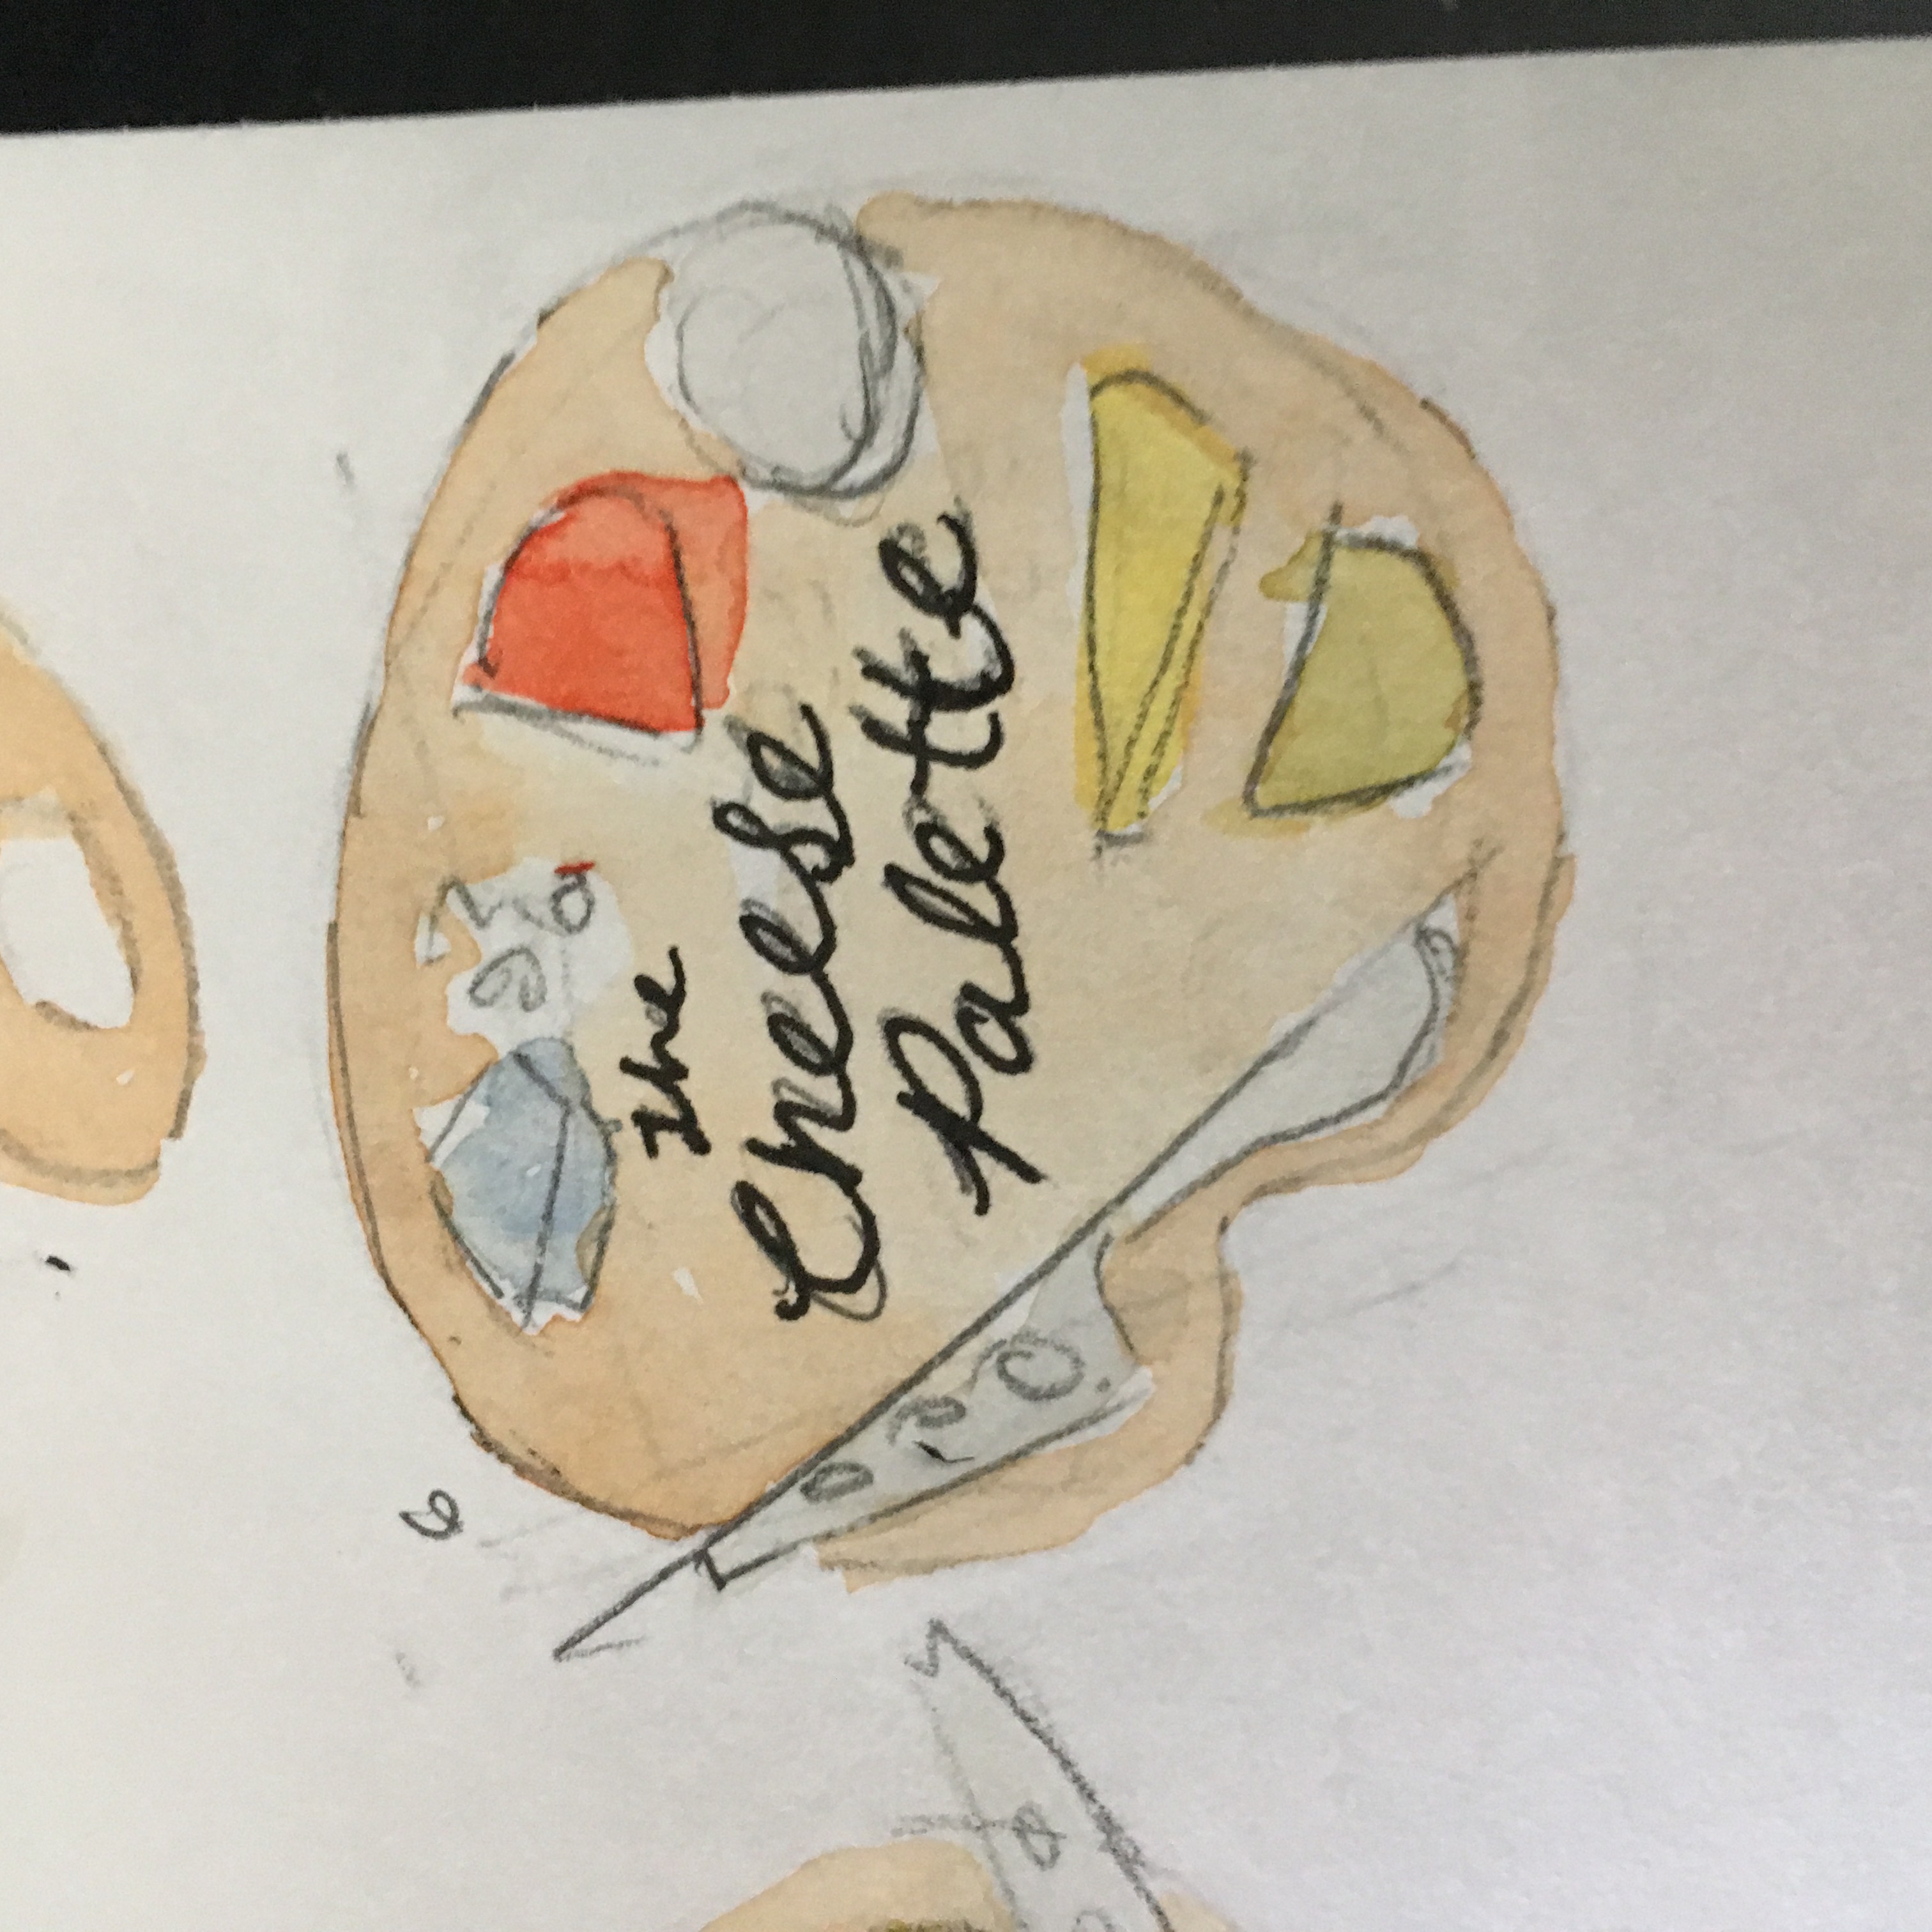 6
The
Cheese
Palette